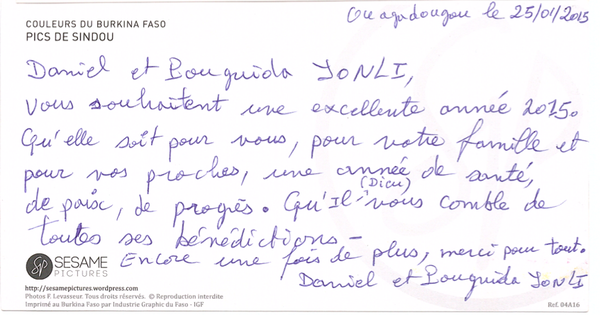 COULEURS DU BURKINA FASO
PICS DE SINDOU
Ouagadougou le 25/01/2015
Daniel et Pouguida YONLI,
Vous souhaitent une excellente année 2015.
Qu'elle soit pour vous, pour votre famille et
pour vos proches, une année de santé,
(Dieu)
de paix, de progrès. Qu'Il vous comble de
toutes ses bénédictions -
Encore une fois de plus, merci pour tout.
Daniel et Pouguida YONLI
SP SESAME
PICTURES
http://sesamepictures.wordpress.com
Photos F. Levasseur. Tous droits réservés. © Reproduction interdite
Imprimé au Burkina Faso par Industrie Graphic du Faso - IGF
Ref. 04A16